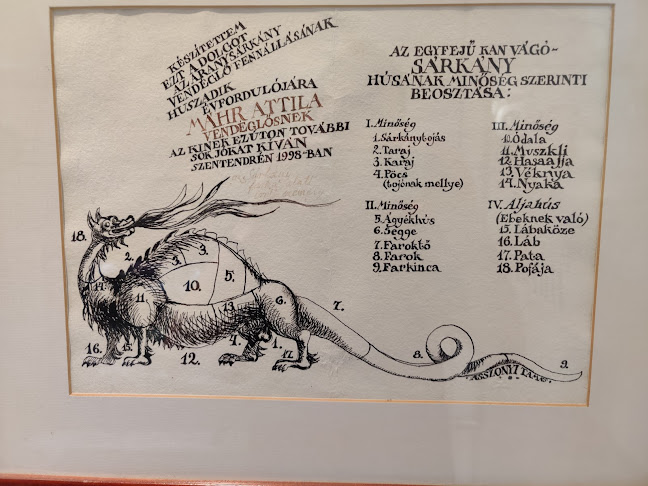 KÉSZÍTETTEM
EZT A DOLGOT
AZ ARANYSÁRKÁNY
VENDÉGLŐ FENNÁLLÁSÁNAK
HUSZADIK
ÉVFORDULÓJÁRA
MÁHR ATTILA
VENDÉGLŐSNEK
AZ KINEK EZÚTON TOVÁBBI
SOK JÓKAT KÍVÁN
SZENTENDRÉN 1998-BAN
AZ EGYFEJŰ KAN VÁGÓ-
SÁRKÁNY
HÚSÁNAK MINŐSÉG SZERINTI
BEOSZTÁSA:
I. Minőség
1. Sárkánytojás
2. Taraj
3. Karaj
4. Pöcs
(tojónak mellye)
II. Minőség
5. Ágyékhús
6. Segge
7. Faroktő
8. Farok
9. Farkinca
III. Minőség
10. Ódala
11. Muszkli
12. Hasaalja
13. Véknya
14. Nyaka
IV. Aljahús
(Ebeknek való)
15. Lábaköze
16. Láb
17. Pata
18. Pofája
18.
2.
3.
3.
14.
10.
5.
11.
13.
6.
7.
16.
15.
12.
4.
1.
17.
8.
9.